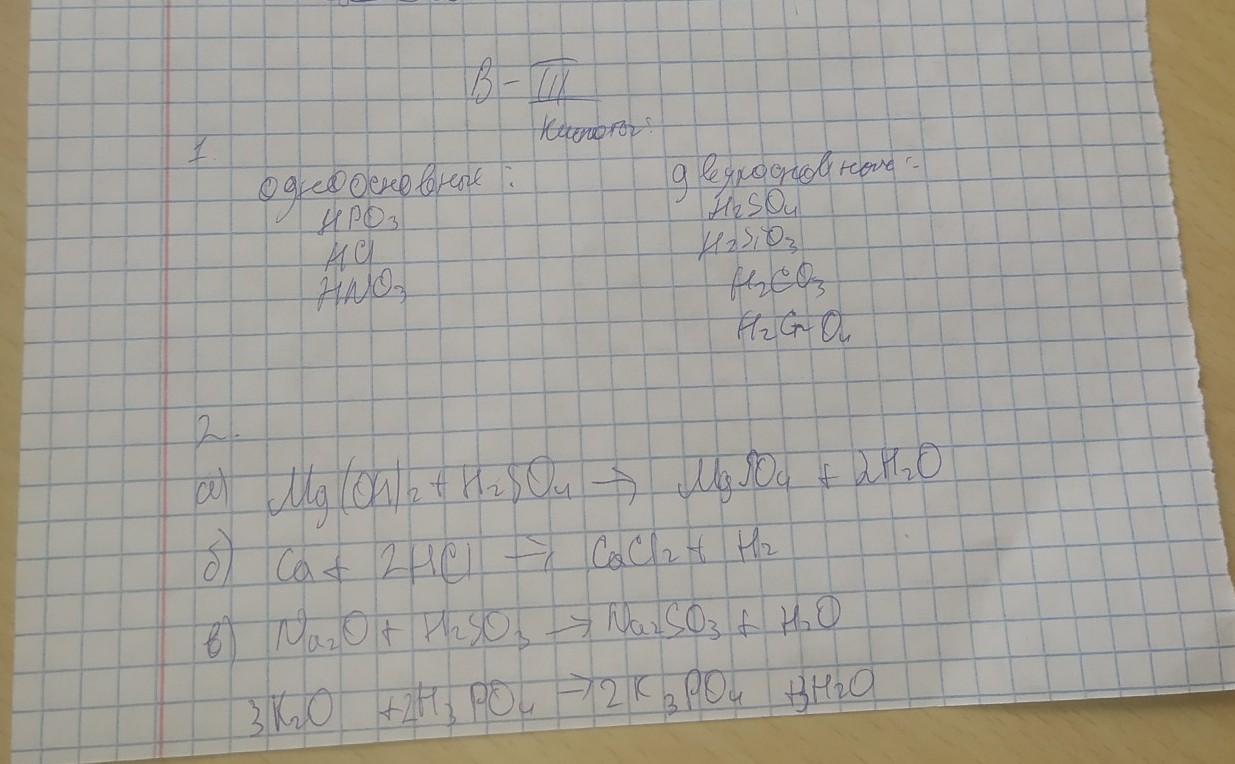 В – III
Кислоты:
1.
одноосновные: двухосновные:
HPO3 H2SO4
HCl H2SiO3
HNO3 H2CO3
H2CrO4
2.
а) Mg(OH)2 + H2SO4 → MgSO4 + 2H2O
б) Ca + 2HCl → CaCl2 + H2
в) Na2O + H2SO3 → Na2SO3 + H2O
3K2O + 2H3PO4 → 2K3PO4 + 3H2O